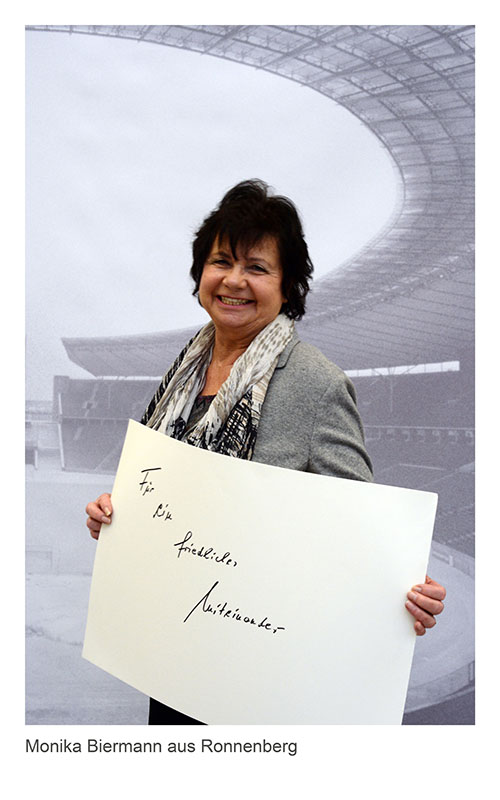 Für
ein
friedliches
Miteinander
Monika Biermann aus Ronnenberg